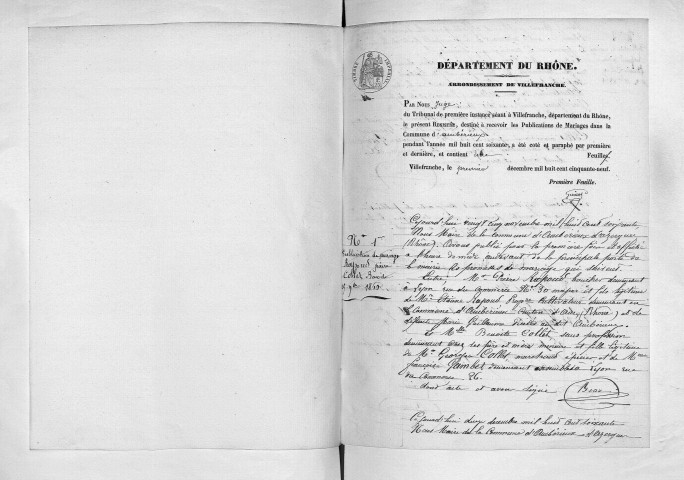 DÉPARTEMENT DU RHÔNE.
ARRONDISSEMENT DE VILLEFRANCHE.
PAR NOUS Juge
du Tribunal de première instance séant à Villefranche, département du Rhône,
le présent REGISTRE, destiné à recevoir les Publications de Mariages dans la
Commune d'ambérieux
pendant l'année mil huit cent soixante, a été coté et paraphé par première
et dernière, et contient Feuilles
Villefranche, le premier décembre mil huit cent cinquante-neuf.
Première Feuille.
N° 1er
Publication de mariage
entre
Collet Benoite
1860
Cejourd'hui vingt cinq novembre mil huit cent soixante
Nous Maire de la Commune d'Amberieux d'azergues
(Rhône) Avons publié pour la première fois et affiché
à l'heure de midi au devant de la principale porte de
la mairie les promesses de mariage qui suivent
Entre Mr Pierre boucher demeurant
à Lyon rue du Commerce N° 30 majeur et fils légitime
de Mr Etienne Propre Cultivateur demeurant en
Commune d'Ambérieux Canton d'Anse (Rhône) et de
défunte Marie Guillerme au dit Ambérieux.
et Mlle Benoite Collet sans profession
demeurant avec ses père et mère mineure et fille légitime
de Mr Georges Collet et de Mme
françoise Jambet demeurant ensemble à Lyon rue
26.
dont acte et avons signé
Cejourd'hui deux decembre mil huit cent soixante
Nous Maire de la Commune d'Ambérieux d'Azergues